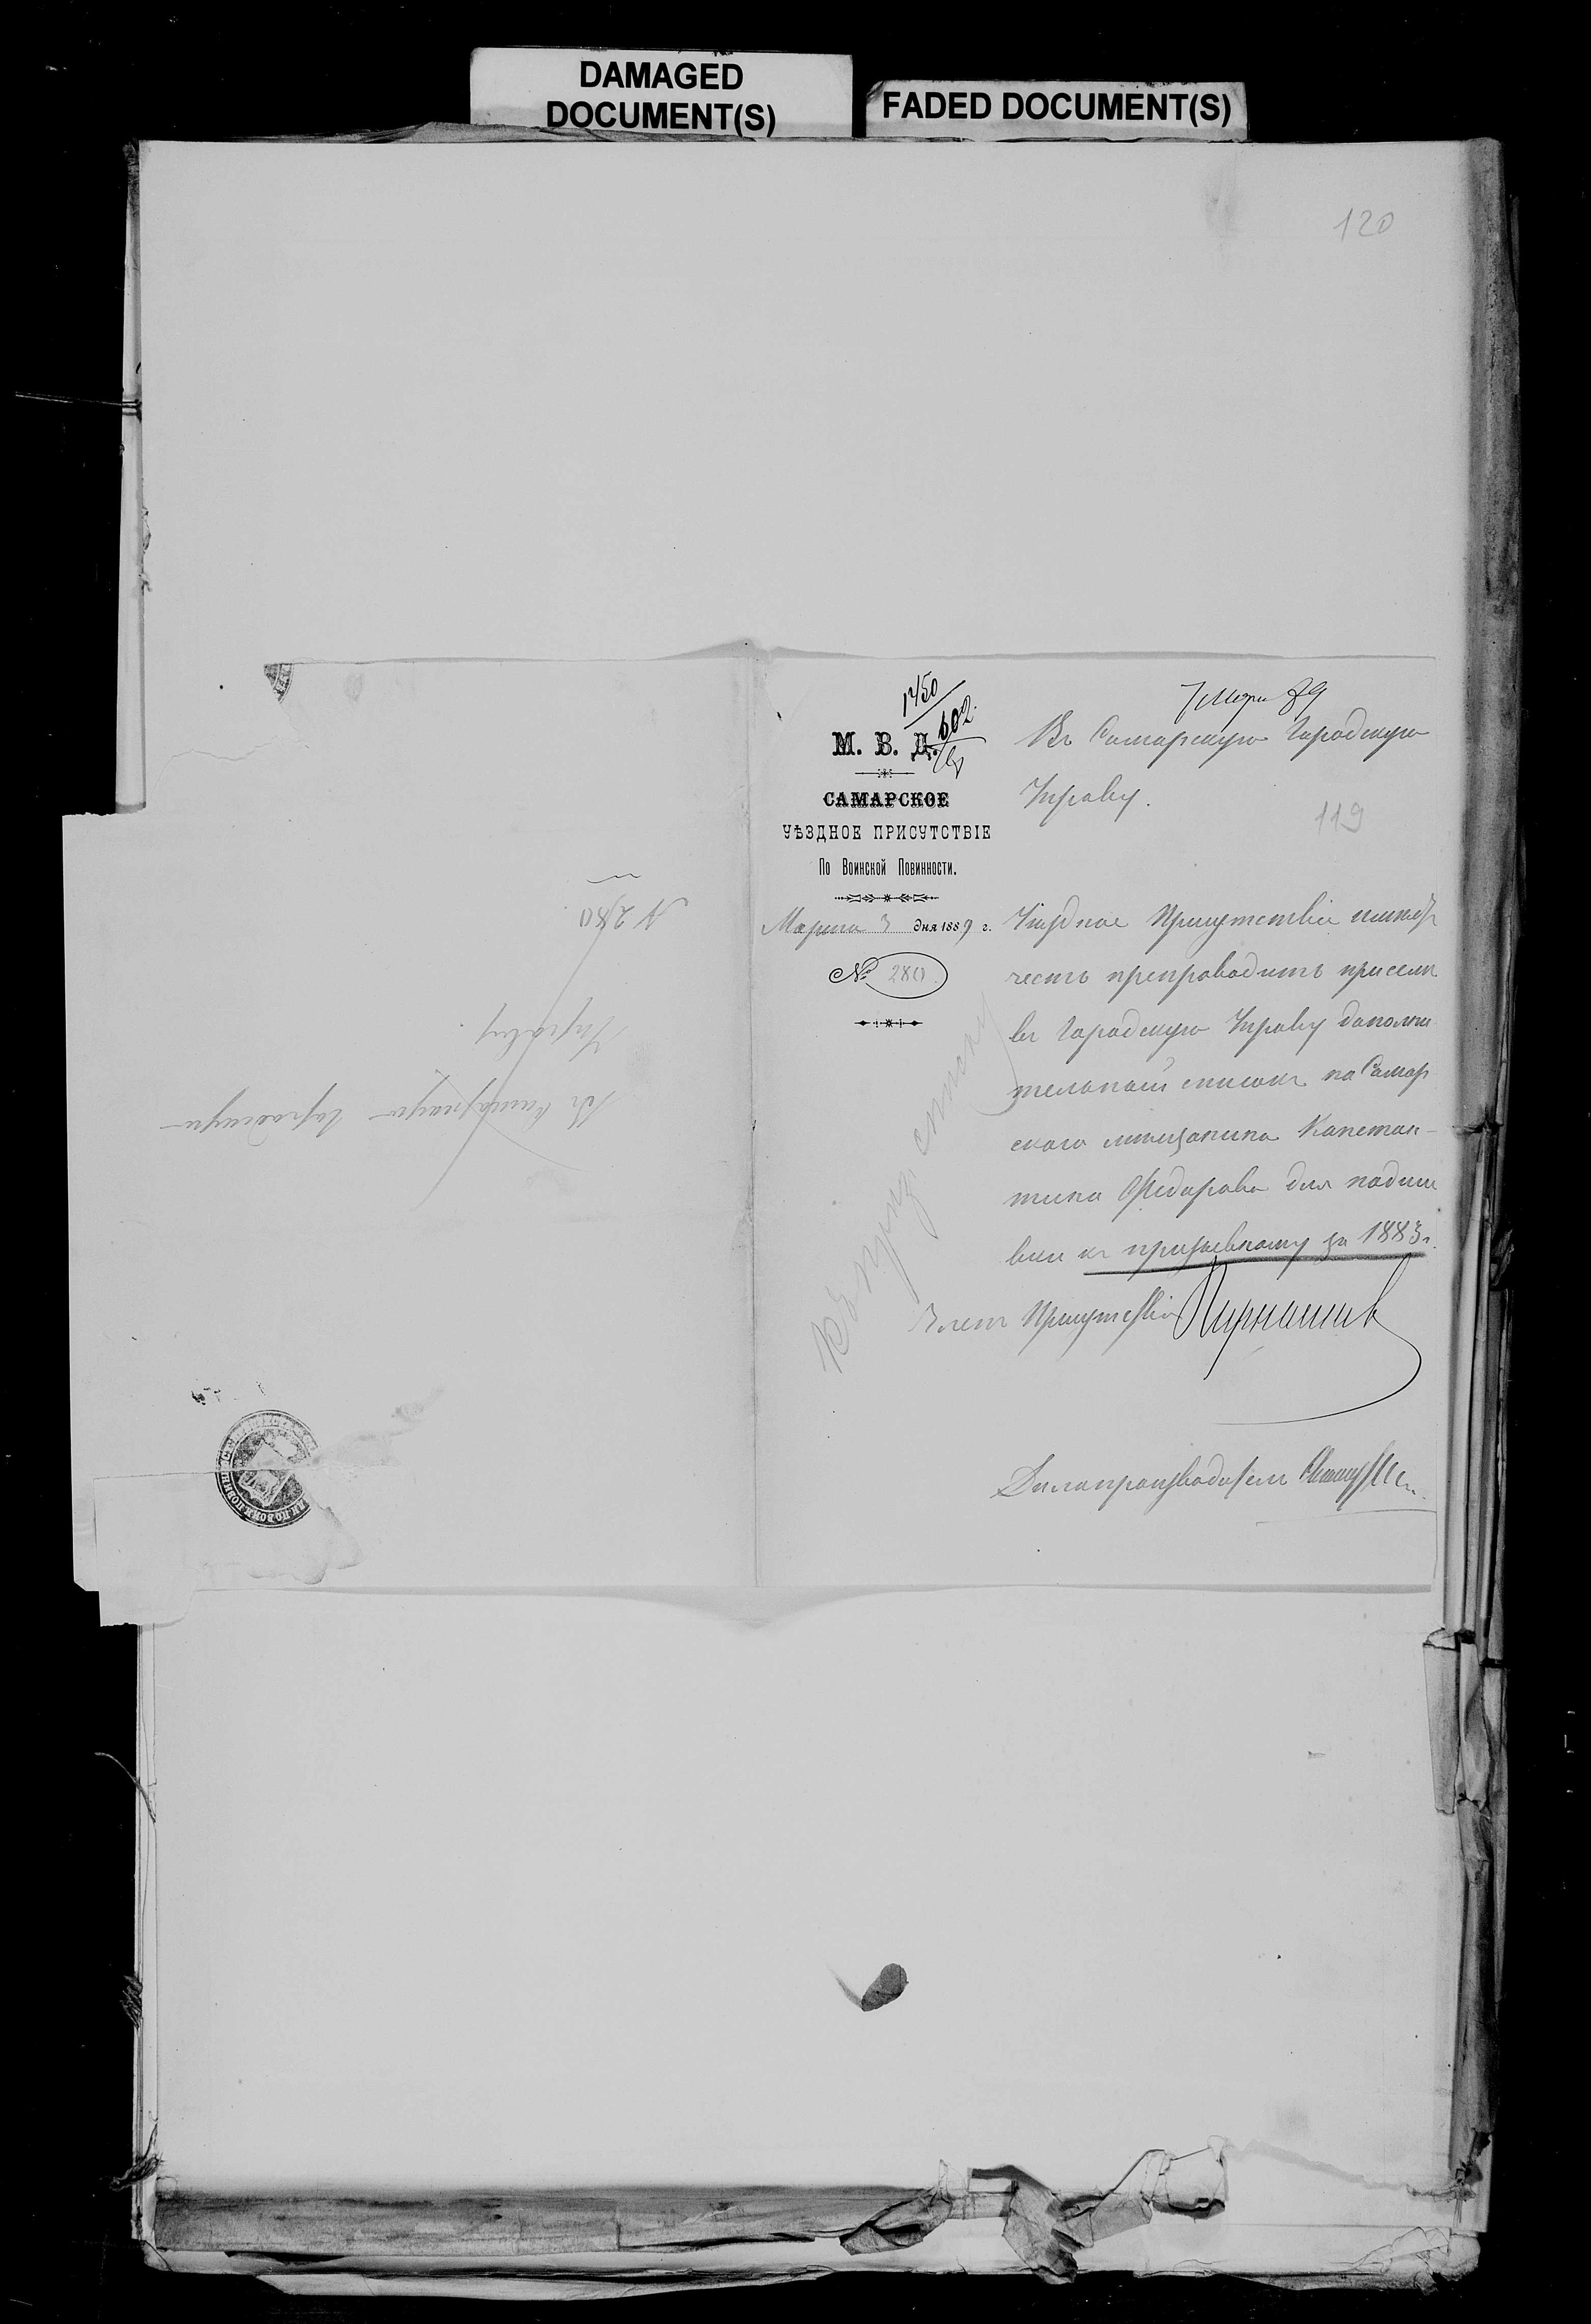 DAMAGED
DOCUMENT(S)
FADED DOCUMENT(S)
120
1450
602
7 Марта 89
М. В. Д.
САМАРСКОЕ
УѢЗДНОЕ ПРИСУТСТВІЕ
По Воинской Повинности.
Марта 3 дня 1889 г.
№ 280.
Въ Самарскую Городскую
Управу.
119
Уѣздное Присутствіе имѣетъ
честь препроводить при семъ
въ Городскую Управу дополни
тельный списокъ на Самар
скаго мѣщанина Констан-
тина Федорова для подши
вки къ призывному за 1883 г.
Членъ Присутствія
Дѣлопроизводитель
Въ Самарскую Городскую
Управу
№ 280.